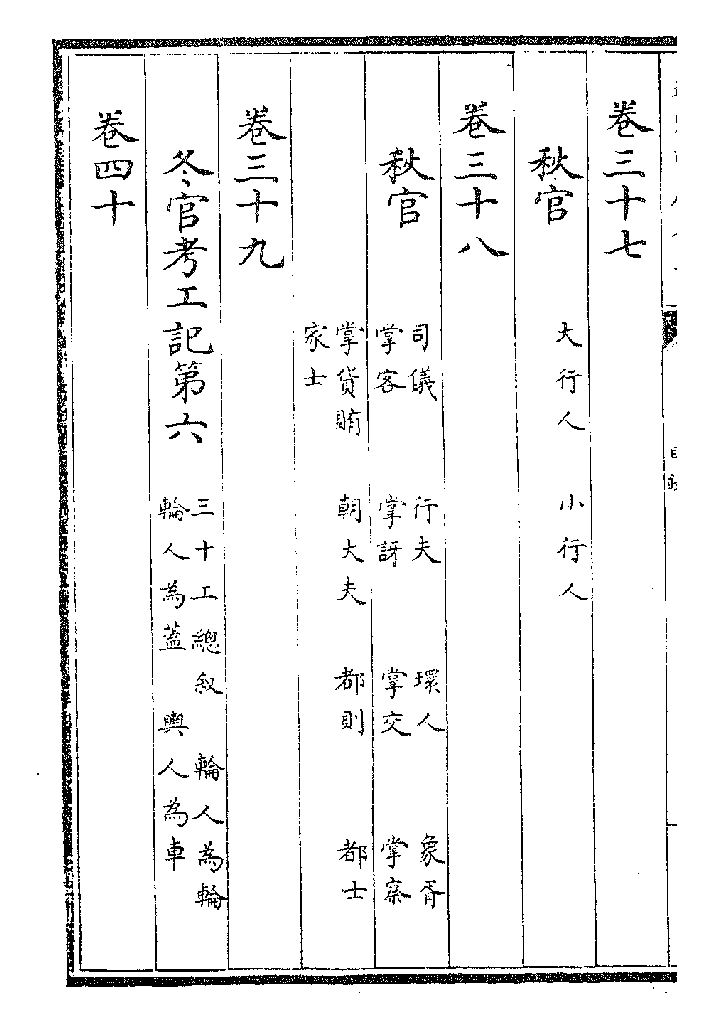 卷三十七
秋官 大行人 小行人
卷三十八
秋官 司儀 行夫 環人 象胥
掌客 掌訝 掌交 掌察
掌貨賄 朝大夫 都則 都士
家士
卷三十九
冬官考工記第六 三十工總叙 輪人為輪
輪人為蓋 輿人為車
卷四十